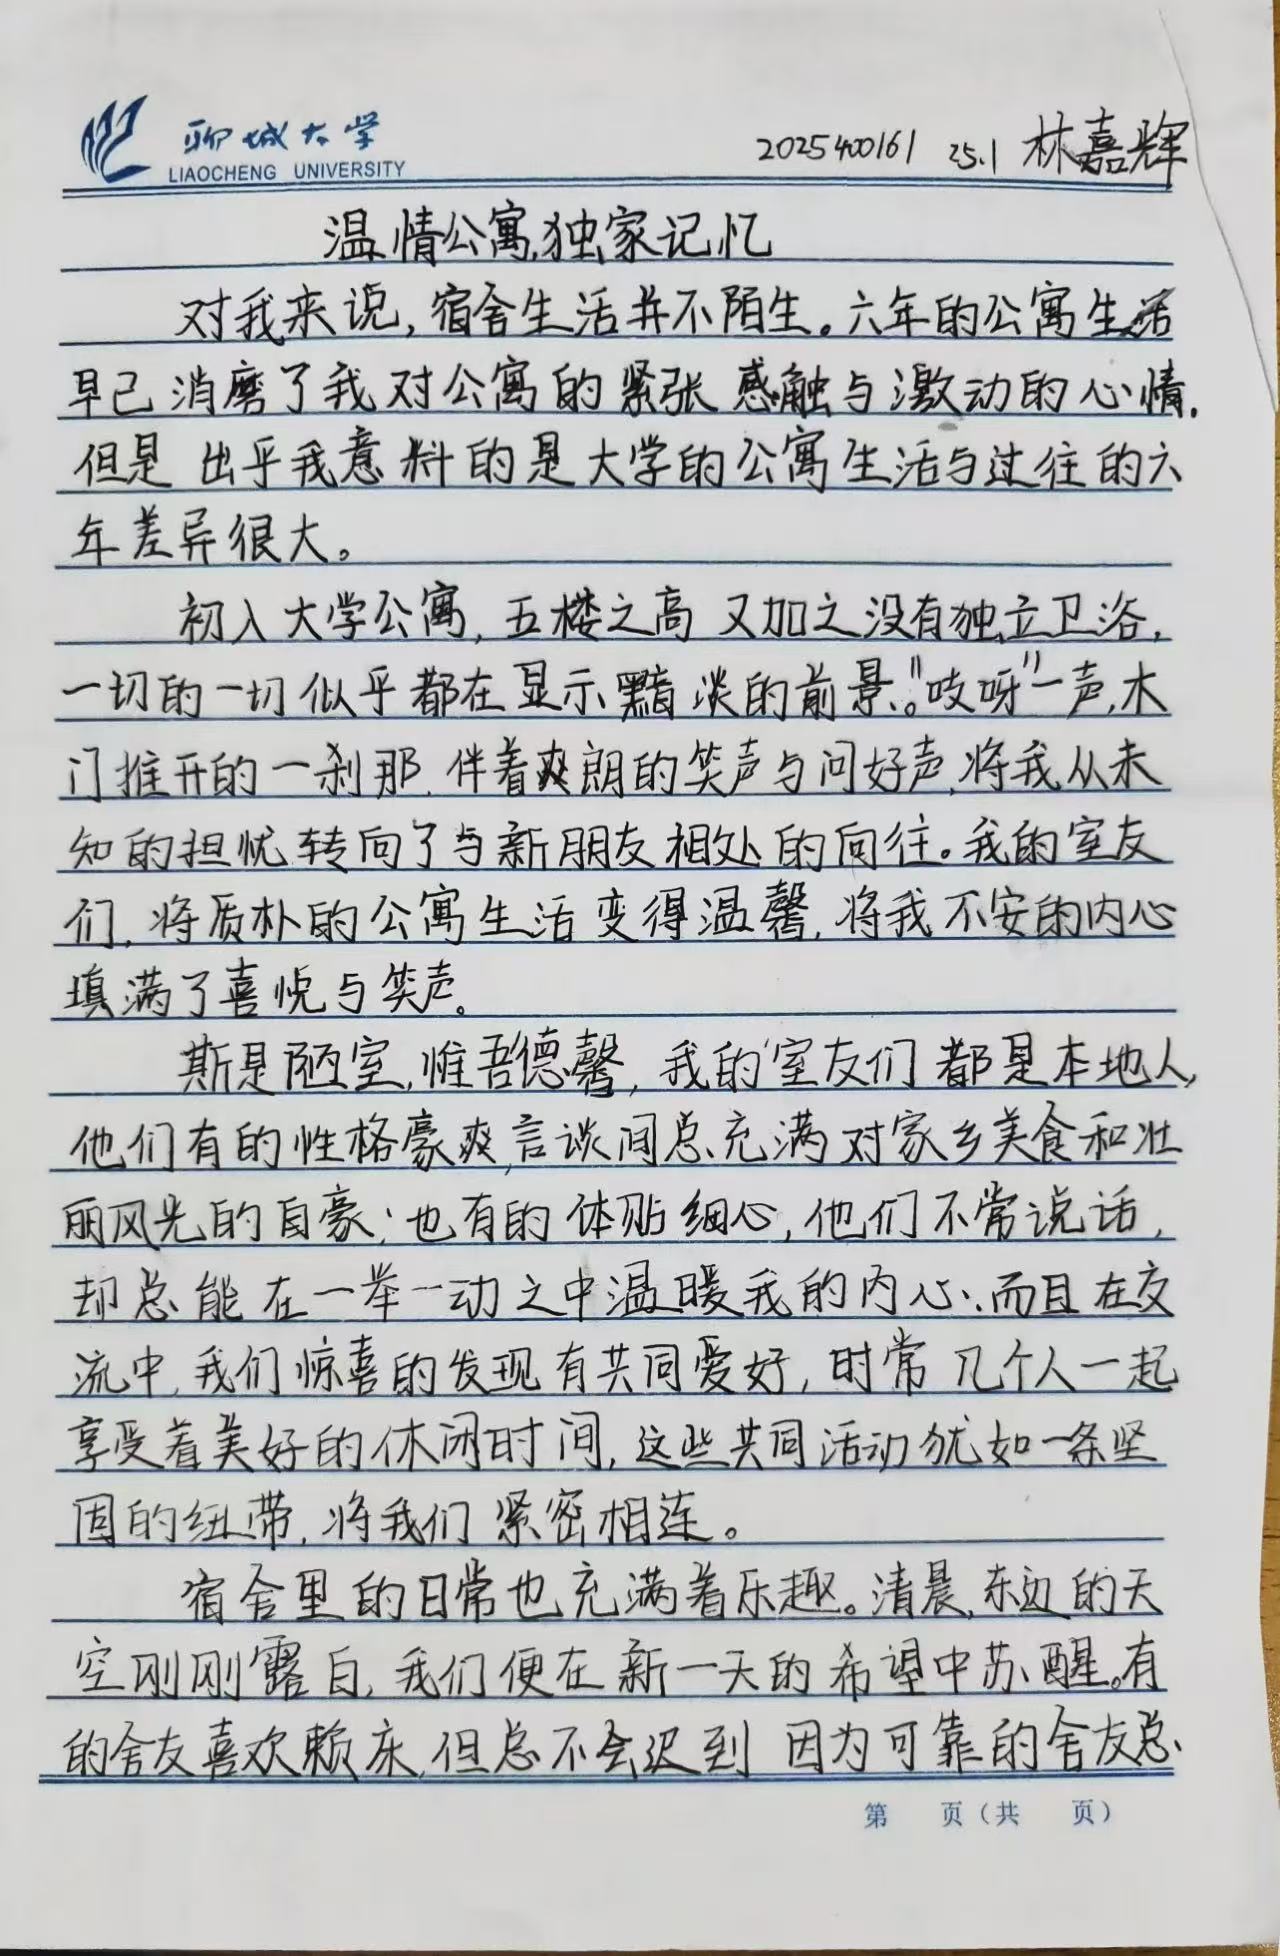 聊城大学
LIAOCHENG UNIVERSITY
2025400161 25.1 林嘉辉
温情公寓,独家记忆
对我来说,宿舍生活并不陌生。六年的公寓生活
早已消磨了我对公寓的紧张感触与激动的心情.
但是出乎我意料的是大学的公寓生活与过往的六
年差异很大。
初入大学公寓,五楼之高又加之没有独立卫浴,
一切的一切似乎都在显示黯淡的前景。"吱呀"一声,木
门推开的一刹那,伴着爽朗的笑声与问好声,将我从未
知的担忧转向了与新朋友相处的向往。我的室友
们,将质朴的公寓生活变得温馨,将我不安的内心
填满了喜悦与笑声。
斯是陋室,惟吾德馨,我的室友们都是本地人,
他们有的性格豪爽,言谈间总充满对家乡美食和壮
丽风光的自豪;也有的体贴细心,他们不常说话,
却总能在一举一动之中温暖我的内心.而且在交
流中,我们惊喜的发现有共同爱好,时常几个人一起
享受着美好的休闲时间,这些共同活动犹如一条坚
固的纽带,将我们紧密相连。
宿舍里的日常也充满着乐趣。清晨,东边的天
空刚刚露白,我们便在新一天的希望中苏醒。有
的舍友喜欢赖床,但总不会迟到 因为可靠的舍友总
第 页(共 页)